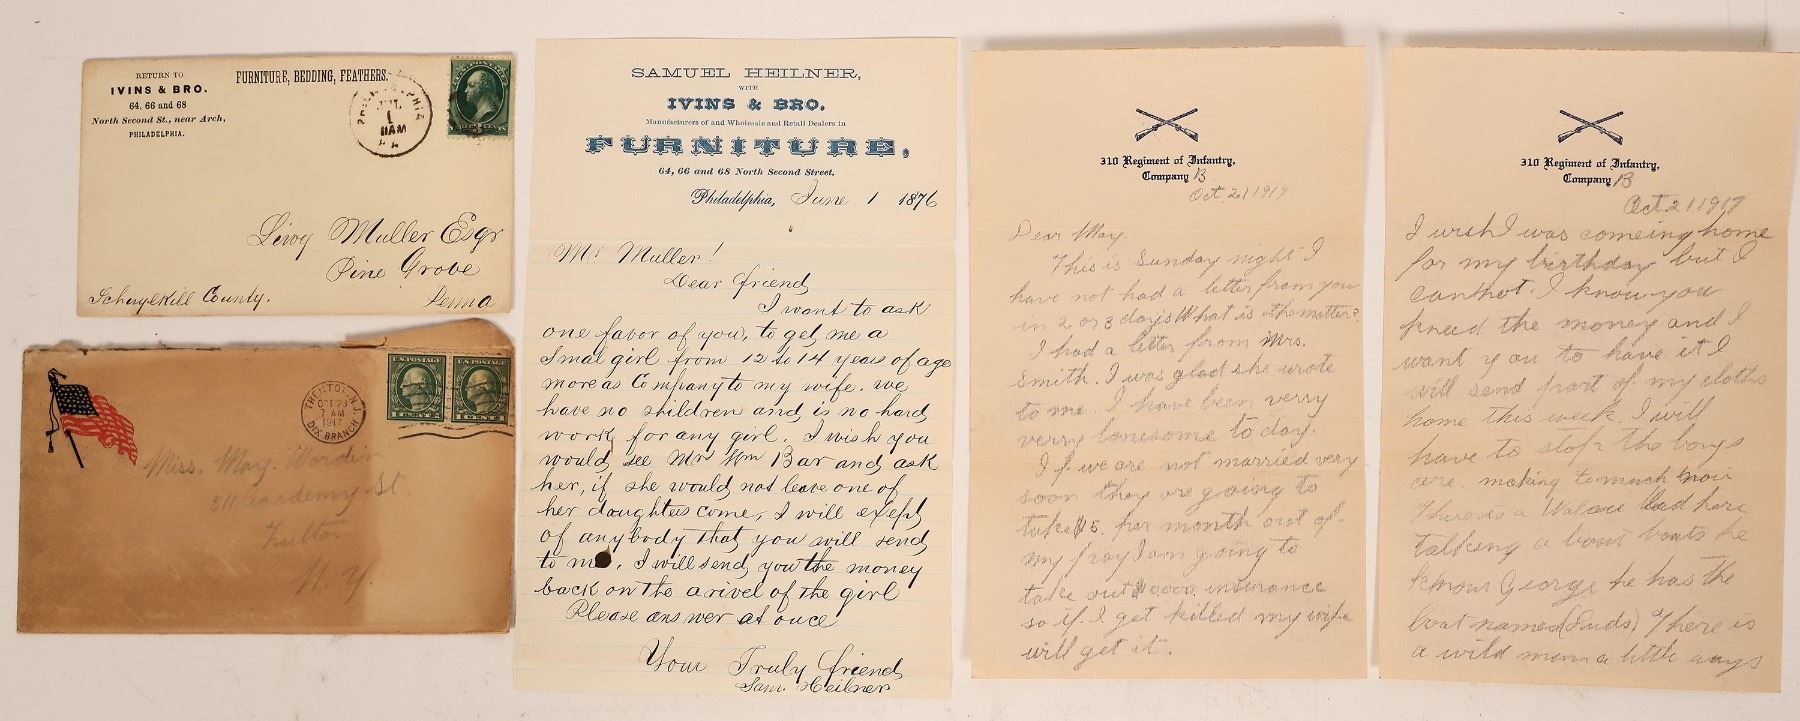 RETURN TO
IVINS & BRO.
64, 66 and 68
North Second St., near Arch,
PHILADELPHIA.
FURNITURE, BEDDING, FEATHERS.
PHILADELPHIA
1
11AM
PA
Livoy Muller Esqr
Pine Grove
Schuylkill County.
Penna
TRENTON, N.J.
OCT 23
7 AM
1917
DIX BRANCH
U.S. POSTAGE
U.S. POSTAGE
1 CENT 1
1 CENT 1
Miss. May. Worden
511 Academy St.
Fulton
N.Y.
SAMUEL HEILNER,
WITH
IVINS & BRO.
Manufacturers of and Wholesale and Retail Dealers in
FURNITURE,
64, 66 and 68 North Second Street.
Philadelphia, June 1 1876
Mr Muller!
Dear friend
I want to ask
one favor of you, to get me a
Smal girl from 12 to 14 years of age
more as Company to my wife. we
have no children and is no hard
work for any girl. I wish you
would see Mr Wm Bar and ask
her, if she would not leave one of
her daughters come, I will exept
of anybody that you will send
to me. I will send you the money
back on the arivel of the girl
Please answer at once
Your Truly friend
Sam. Heilner
310 Regiment of Infantry,
Company B
Oct. 21 1917
Dear May.
This is Sunday night I
have not had a letter from you
in 2 or 3 days What is the matter?
I had a letter from Mrs.
Smith. I was glad she wrote
to me. I have been verry
verry lonesome to day.
If we are not married very
soon they are going to
take $15. per month out of
my pay I am going to
take out insurance
so if I get killed my wife
will get it.
310 Regiment of Infantry,
Company B
Oct 21 1917
I wish I was comeing home
for my birthday but I
cannot. I know you
kneed the money and I
want you to have it I
will send part of my cloths
home this week. I will
have to stop the boys
are making to much noix
There is a lad here
talking a bout boats he
knows George he has the
boat named (Suds) There is
a wild man a little ways